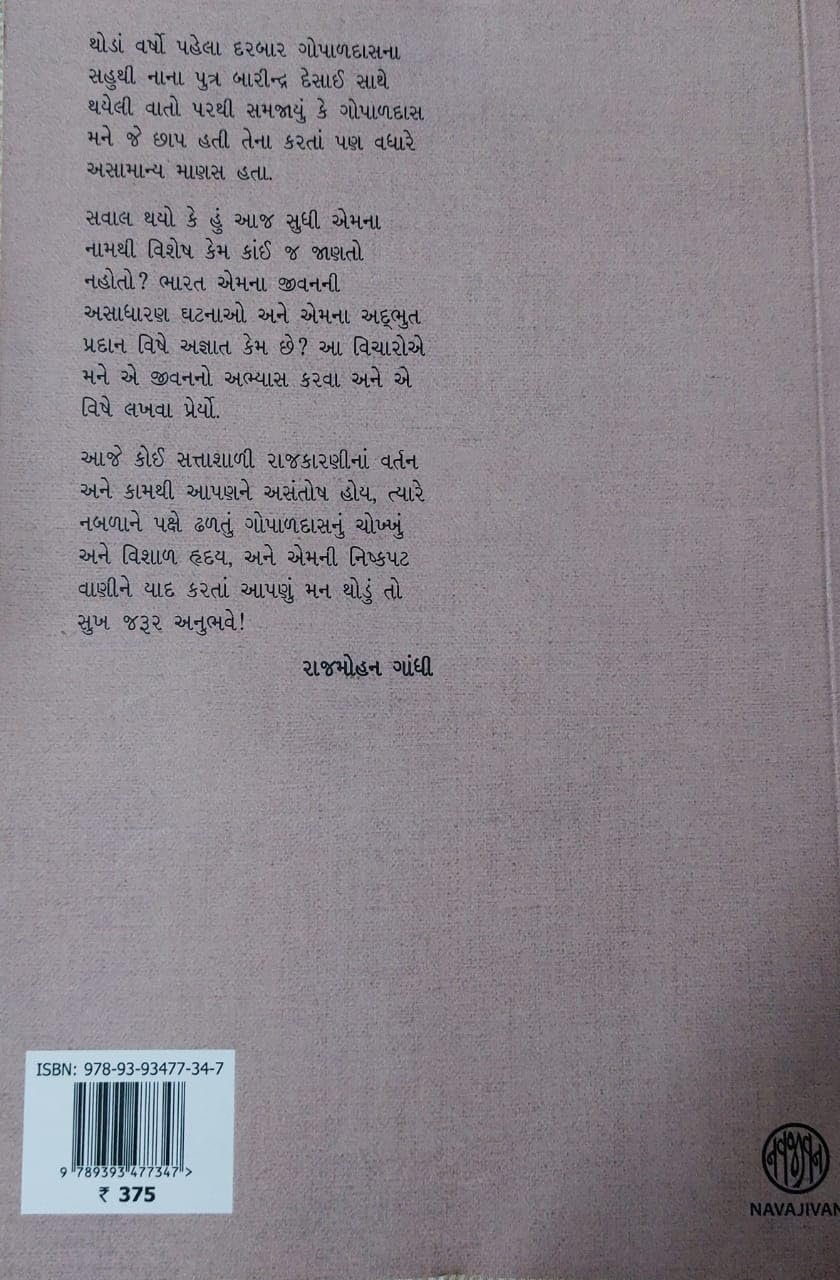 થોડાં વર્ષો પહેલા દરબાર ગોપાળદાસના
સહુથી નાના પુત્ર બારીન્દ્ર દેસાઈ સાથે
થયેલી વાતો પરથી સમજાયું કે ગોપાળદાસ
મને જે છાપ હતી તેના કરતાં પણ વધારે
અસામાન્ય માણસ હતા.
સવાલ થયો કે હું આજ સુધી એમના
નામથી વિશેષ કેમ કાંઈ જ જાણતો
નહોતો? ભારત એમના જીવનની
અસાધારણ ઘટનાઓ અને એમના અદ્ભુત
પ્રદાન વિષે અજ્ઞાત કેમ છે? આ વિચારોએ
મને એ જીવનનો અભ્યાસ કરવા અને એ
વિષે લખવા પ્રેર્યો.
આજે કોઈ સત્તાશાળી રાજકારણીનાં વર્તન
અને કામથી આપણને અસંતોષ હોય, ત્યારે
નબળાને પક્ષે ઢળતું ગોપાળદાસનું ચોખ્ખું
અને વિશાળ હૃદય, અને એમની નિષ્કપટ
વાણીને યાદ કરતાં આપણું મન થોડું તો
સુખ જરૂર અનુભવે!
રાજમોહન ગાંધી
ISBN: 978-93-93477-34-7
9 789393 477347 >
₹ 375
નવજીવન
NAVAJIVAN